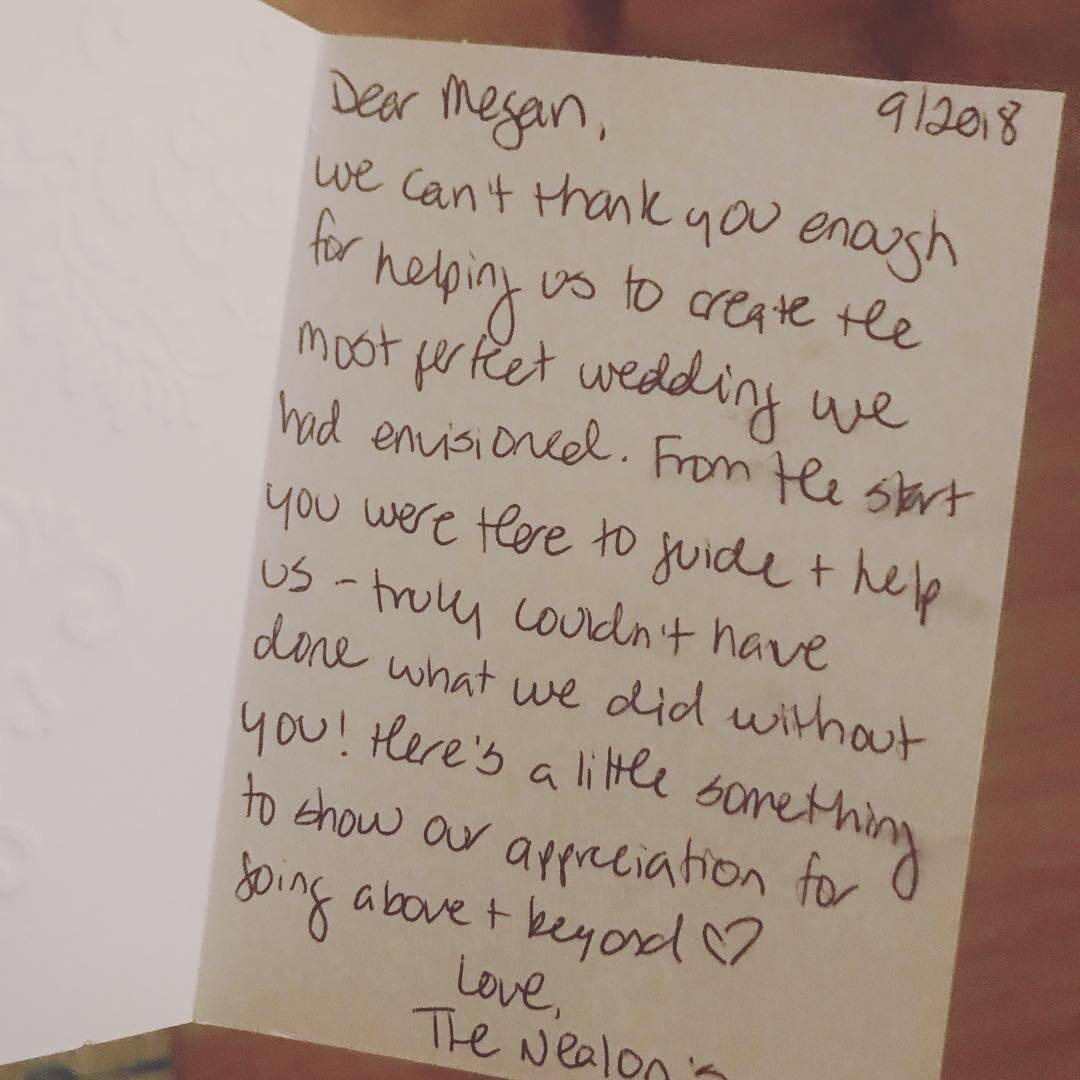 Dear Megan, 9/2018
we can't thank you enough
for helping us to create the
most perfect wedding we
had envisioned. From the start
you were there to guide + help
us - truly couldn't have
done what we did without
you! Here's a little something
to show our appreciation for
going above + beyond ♡
Love,
The Nealon's